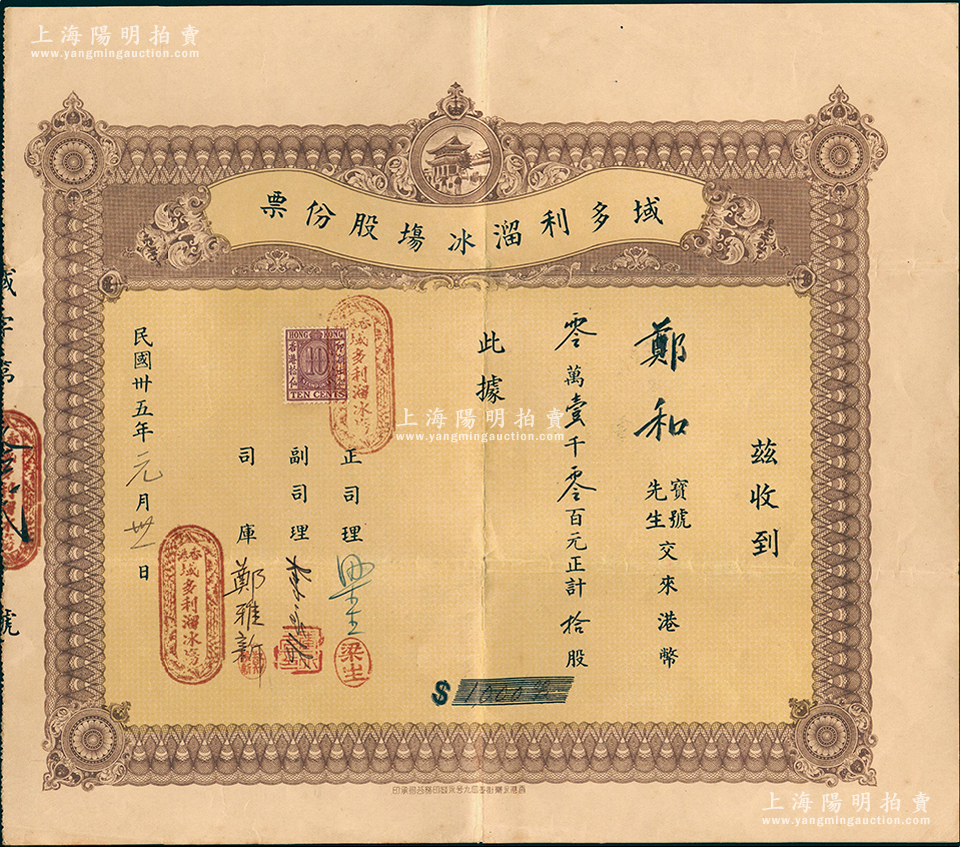 上海陽明拍賣
www.yangmingauction.com
域多利溜冰塲股份票
茲收到
鄭和 寶號先生交來港幣
零萬壹千零百元正計拾股
此據
$ 1000
正司理 梁生
梁生
副司理
司庫 鄭雅新
民國卅五年元月卅一日
HONG KONG
10
TEN CENTS
香港域多利溜冰塲
香港域多利溜冰塲
域字第
號
上海陽明拍賣
www.yangmingauction.com
上海陽明拍賣
www.yangmingauction.com